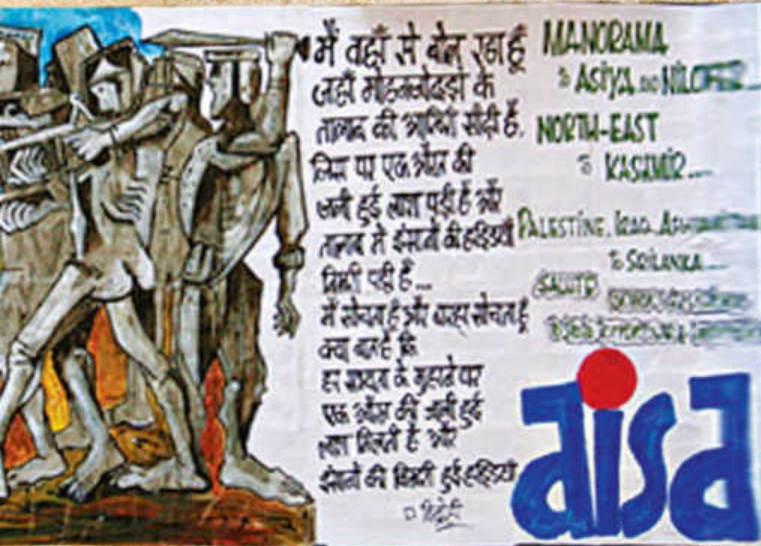 मैं वहाँ से बोल रहा हूँ
जहाँ मोहनजोदड़ो के
तालाब की आखिरी सीढ़ी है.
जिस पर एक औरत की
जली हुई लाश पड़ी है और
तालाब में इंसानों की हड्डियाँ
बिखरी पड़ी हैं...
मैं सोचता हूँ और बारहा सोचता हूँ
क्या बात है कि
हर सभ्यता के मुहाने पर
एक औरत की जली हुई
लाश मिलती है और
इंसानों की बिखरी हुई हड्डियाँ
MANORAMA
to ASIYA AND
NORTH-EAST
to KASHMIR....
PALESTINE, IRAQ,
to SRILANKA....
aisa